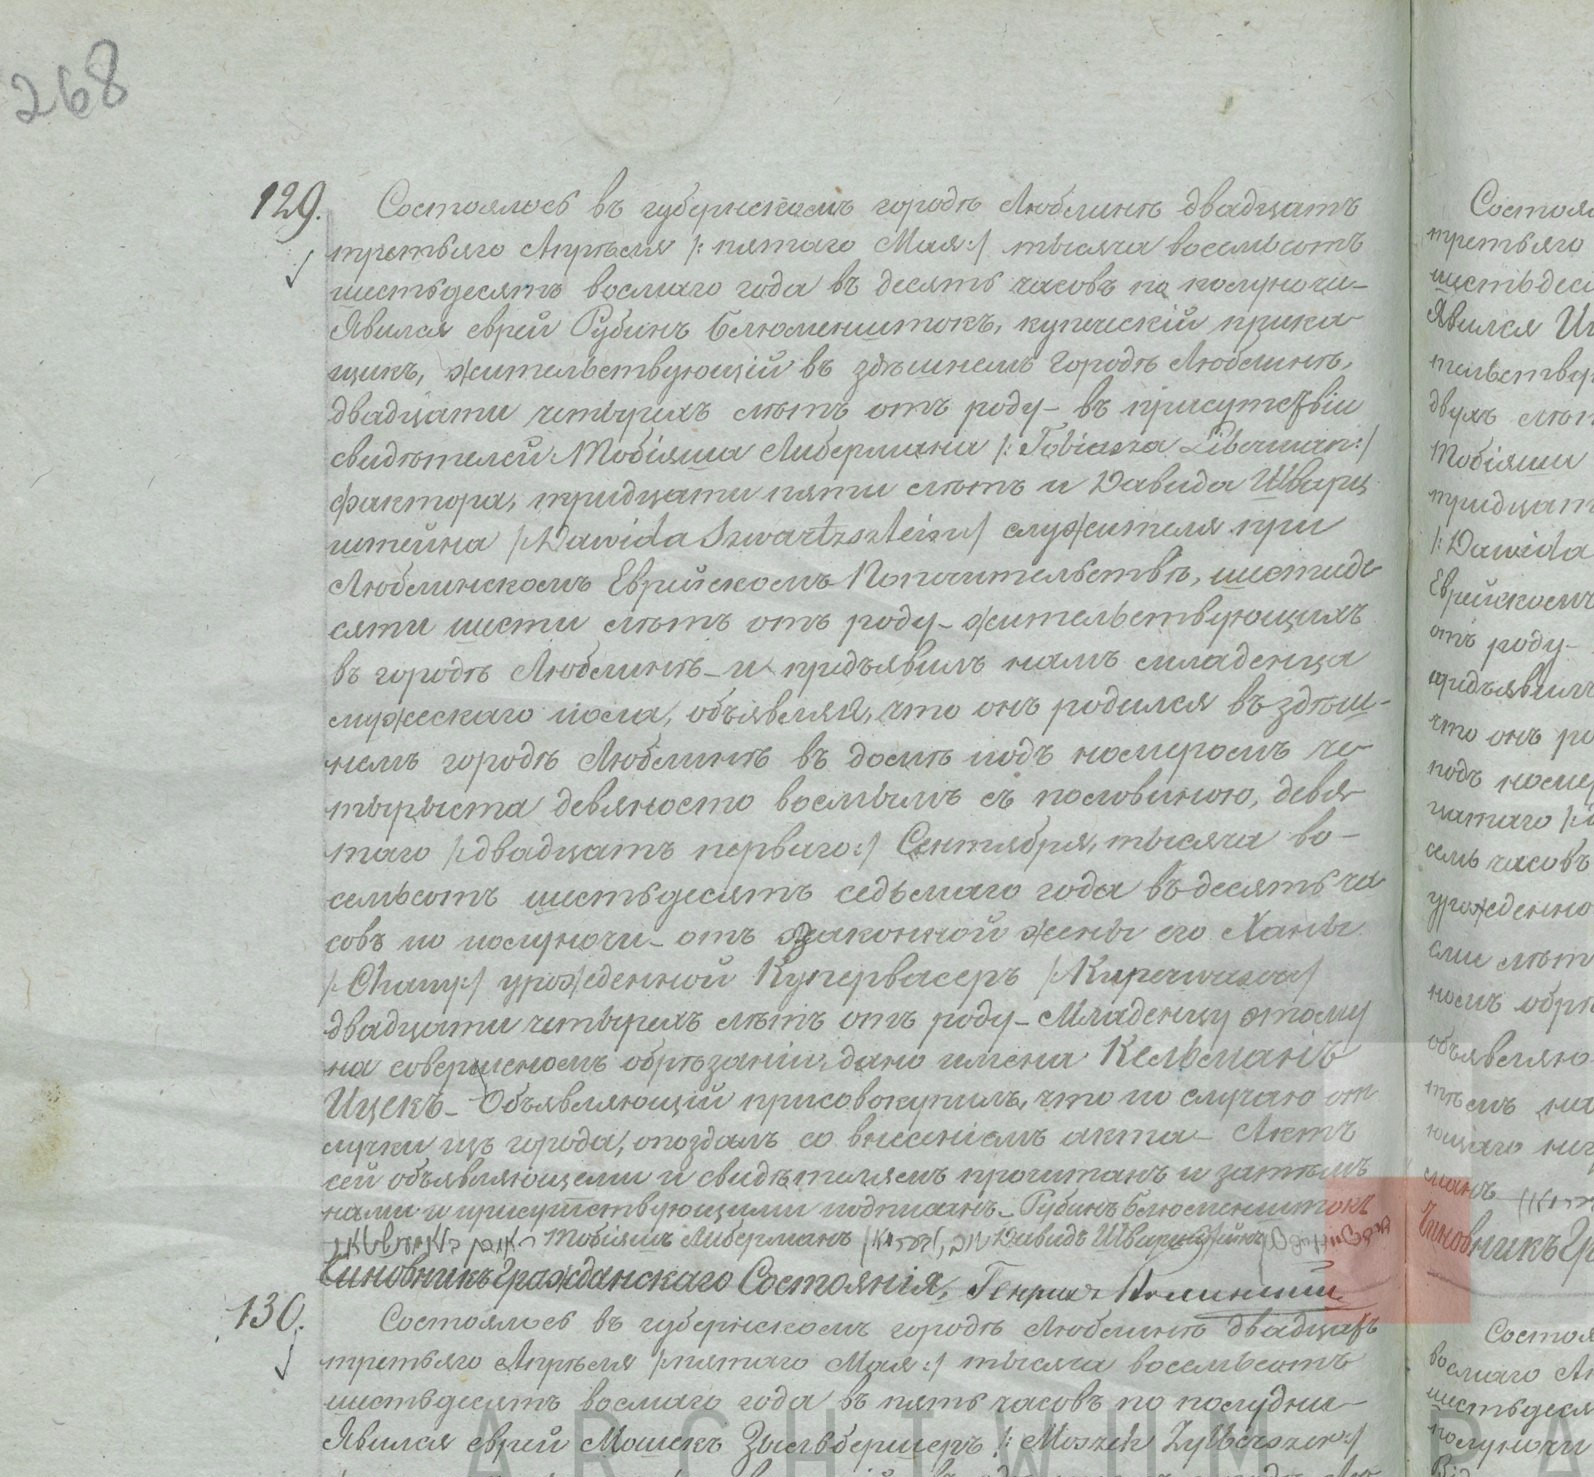 268
129. Состоялось въ губернскомъ городѣ Люблинѣ двадцать
третьяго Апрѣля /: пятаго Мая :/ тысяча восемьсотъ
шестьдесятъ восмаго года въ десять часовъ по полуночи –
Явился еврей Рубинъ Блюменштокъ, купеческій прика-
щикъ, жительствующій въ здѣшнемъ городѣ Люблинѣ,
двадцати четырехъ лѣтъ отъ роду – въ присутствіи
свидѣтелей Тобіяша Либермана /: Tobiasza Liberman :/
фактора, тридцати пяти лѣтъ и Давида Шварц
штейна /: Dawida Szwartzsztein :/ служителя при
Люблинскомъ Еврейскомъ Попечительствѣ, шестиде
сяти шести лѣтъ отъ роду – жительствующихъ
въ городѣ Люблинѣ – и предъявилъ намъ младенца
мужескаго пола, объявляя, что онъ родился въ здѣш-
немъ городѣ Люблинѣ въ домѣ подъ номеромъ че-
тырыста девяносто восмымъ съ половиною, девя-
таго /: двадцать перваго :/ Сентября, тысяча во-
семьсотъ шестьдесятъ седьмаго года въ десять ча
совъ по полуночи – отъ законной жены его Ханы
/: Chany :/ урожденной Купервасеръ /: Kuperwaser :/
двадцати четырехъ лѣтъ отъ роду – Младенцу этому
на совершеномъ обрѣзаніи, дано имена Кельманъ
Ицекъ – Объявляющій присовокупилъ, что по случаю от
лучки изъ города, опоздалъ со внесеніемъ акта – Актъ
сей объявляющему и свидѣтелямъ прочитанъ и затѣмъ
нами и присутствующими подписанъ – Рубинъ Блюменштокъ
Тобіяшъ Либерманъ Давидъ Шварцштейнъ
Чиновникъ Гражданскаго Состоянія, Генрихъ
130. Состоялось въ губернскомъ городѣ Люблинѣ двадцать
третьяго Апрѣля /: пятаго Мая :/ тысяча восемьсотъ
шестьдесятъ восмаго года въ пять часовъ по полудни –
Явился еврей Мошекъ Зыльбершеръ /: Moszek Zylberszer :/
Состоя
третьяго
шестьдес
Явился
тельству
двухъ лѣт
Тобіяша
тридцат
/: Dawida
Еврейскомъ
отъ роду –
предъявилъ
что онъ ро
подъ номер
цатаго
семь часовъ
урожденно
ми лѣт
номъ обрѣ
объявляю
Чиновникъ Гр
Состоя
восмаго Ап
шестьдеся
полуночи
ARCHIWUM PA